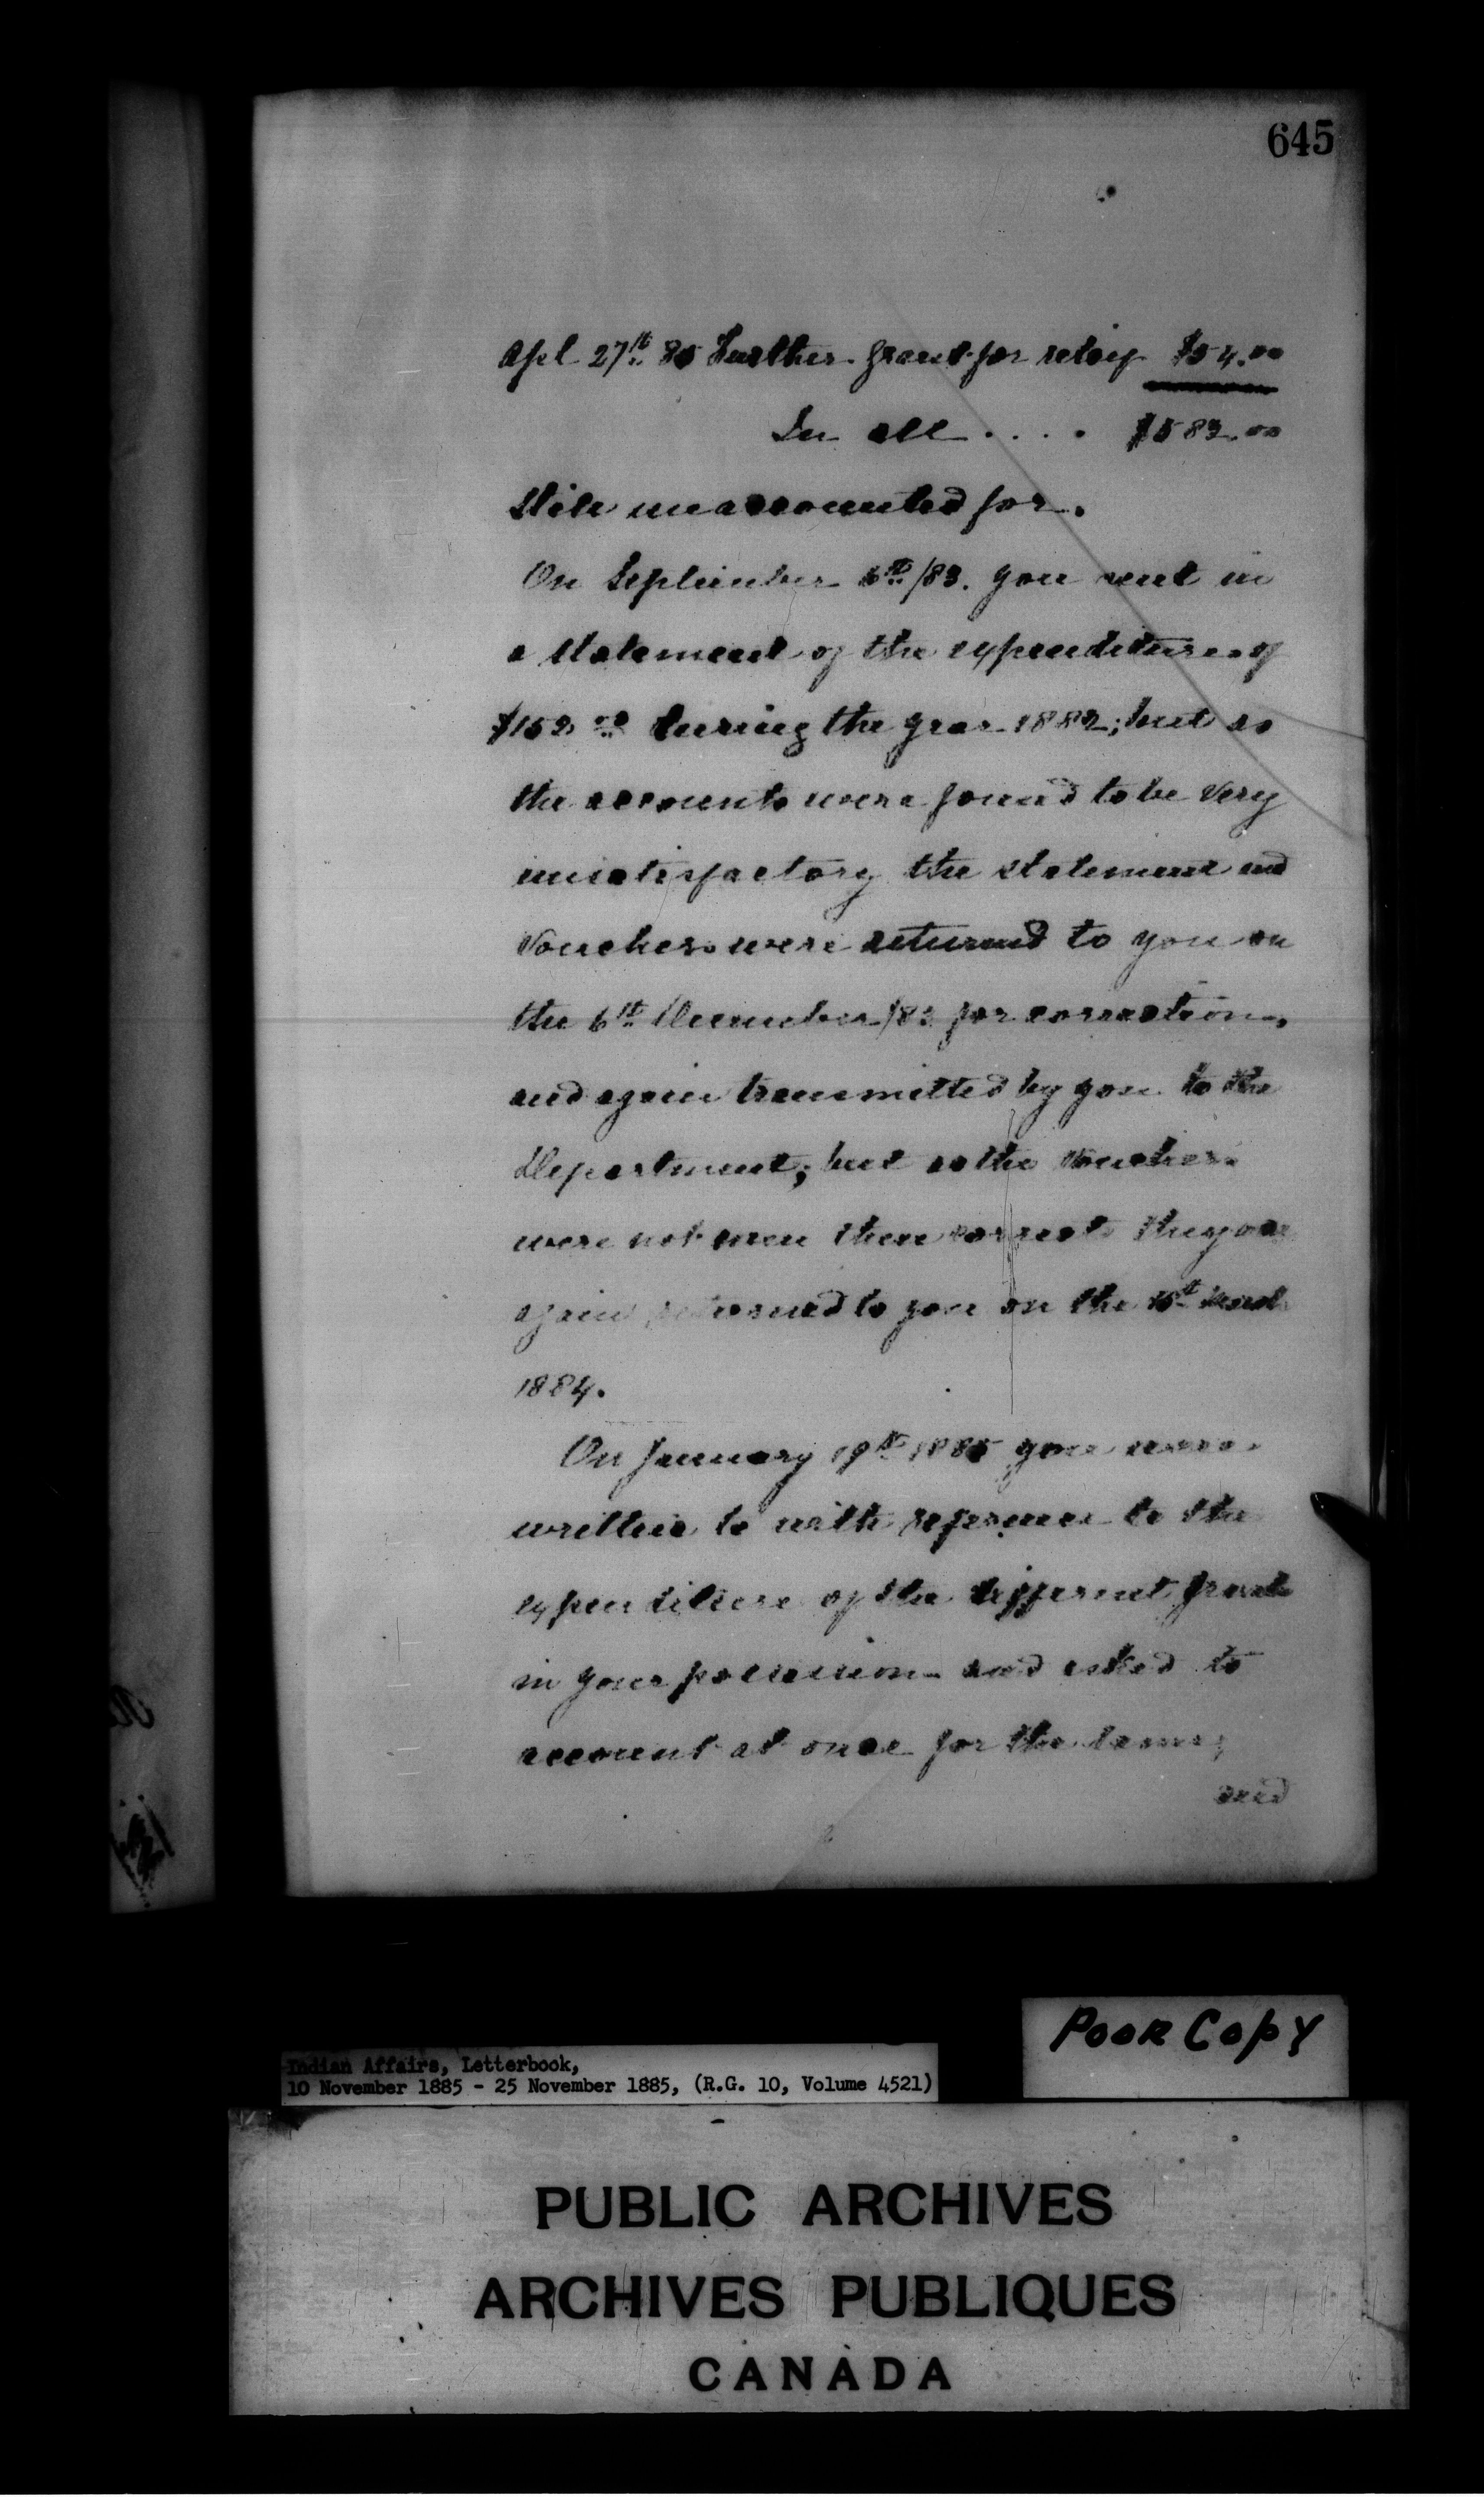 645
Apl 27th 85 Further grant for relief $54.00
In all .... $583.00
Still unaccounted for.
On September 6th/83. you sent in
a statement of the expenditure of
$152.00 during the year 1882; but as
the accounts were found to be very
unsatisfactory the statement and
Vouchers were returned to you on
the 6th December/83 for correction,
and again transmitted by you to the
Department; but as the Vouchers
were not even then correct they
again returned to you on the
1884.
On January 19th 1885 you were
written to with reference to the
expenditure of the different grants
in your possession and asked to
account at once for the same;
and
Poor Copy
Indian Affairs, Letterbook,
10 November 1885 - 25 November 1885, (R.G. 10, Volume 4521)
PUBLIC ARCHIVES
ARCHIVES PUBLIQUES
CANADA